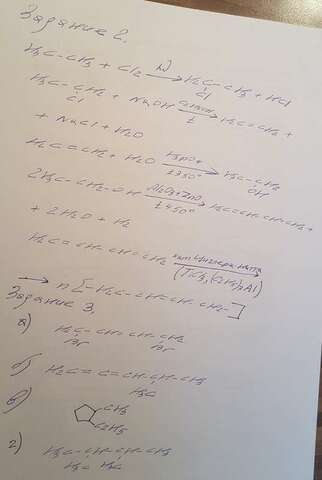 Задание 2.
H₃C-CH₃ + Cl₂ →(hν) H₂C-CH₃ + HCl
Cl
H₃C-CH₂ + NaOH →(C₂H₅OH, t) H₂C=CH₂ +
Cl
+ NaCl + H₂O
H₂C=CH₂ + H₂O →(H₃PO₄) H₃C-CH₂
OH
2H₃C-CH₂-OH →(Al₂O₃+ZnO, t 450°) H₂C=CH-CH=CH₂ +
+ 2H₂O + H₂
H₂C=CH-CH=CH₂ (TiCl₄, (C₂H₅)₃Al)
→ n[-H₂C-CH=CH-CH₂-]
Задание 3.
а) H₂C-CH=CH-CH₂
Br Br
б) H₂C=C=CH-CH-CH₃
H₃C
в) CH₃
C₂H₅
г) H₃C-CH-CH-CH₃
H₃C H₃C